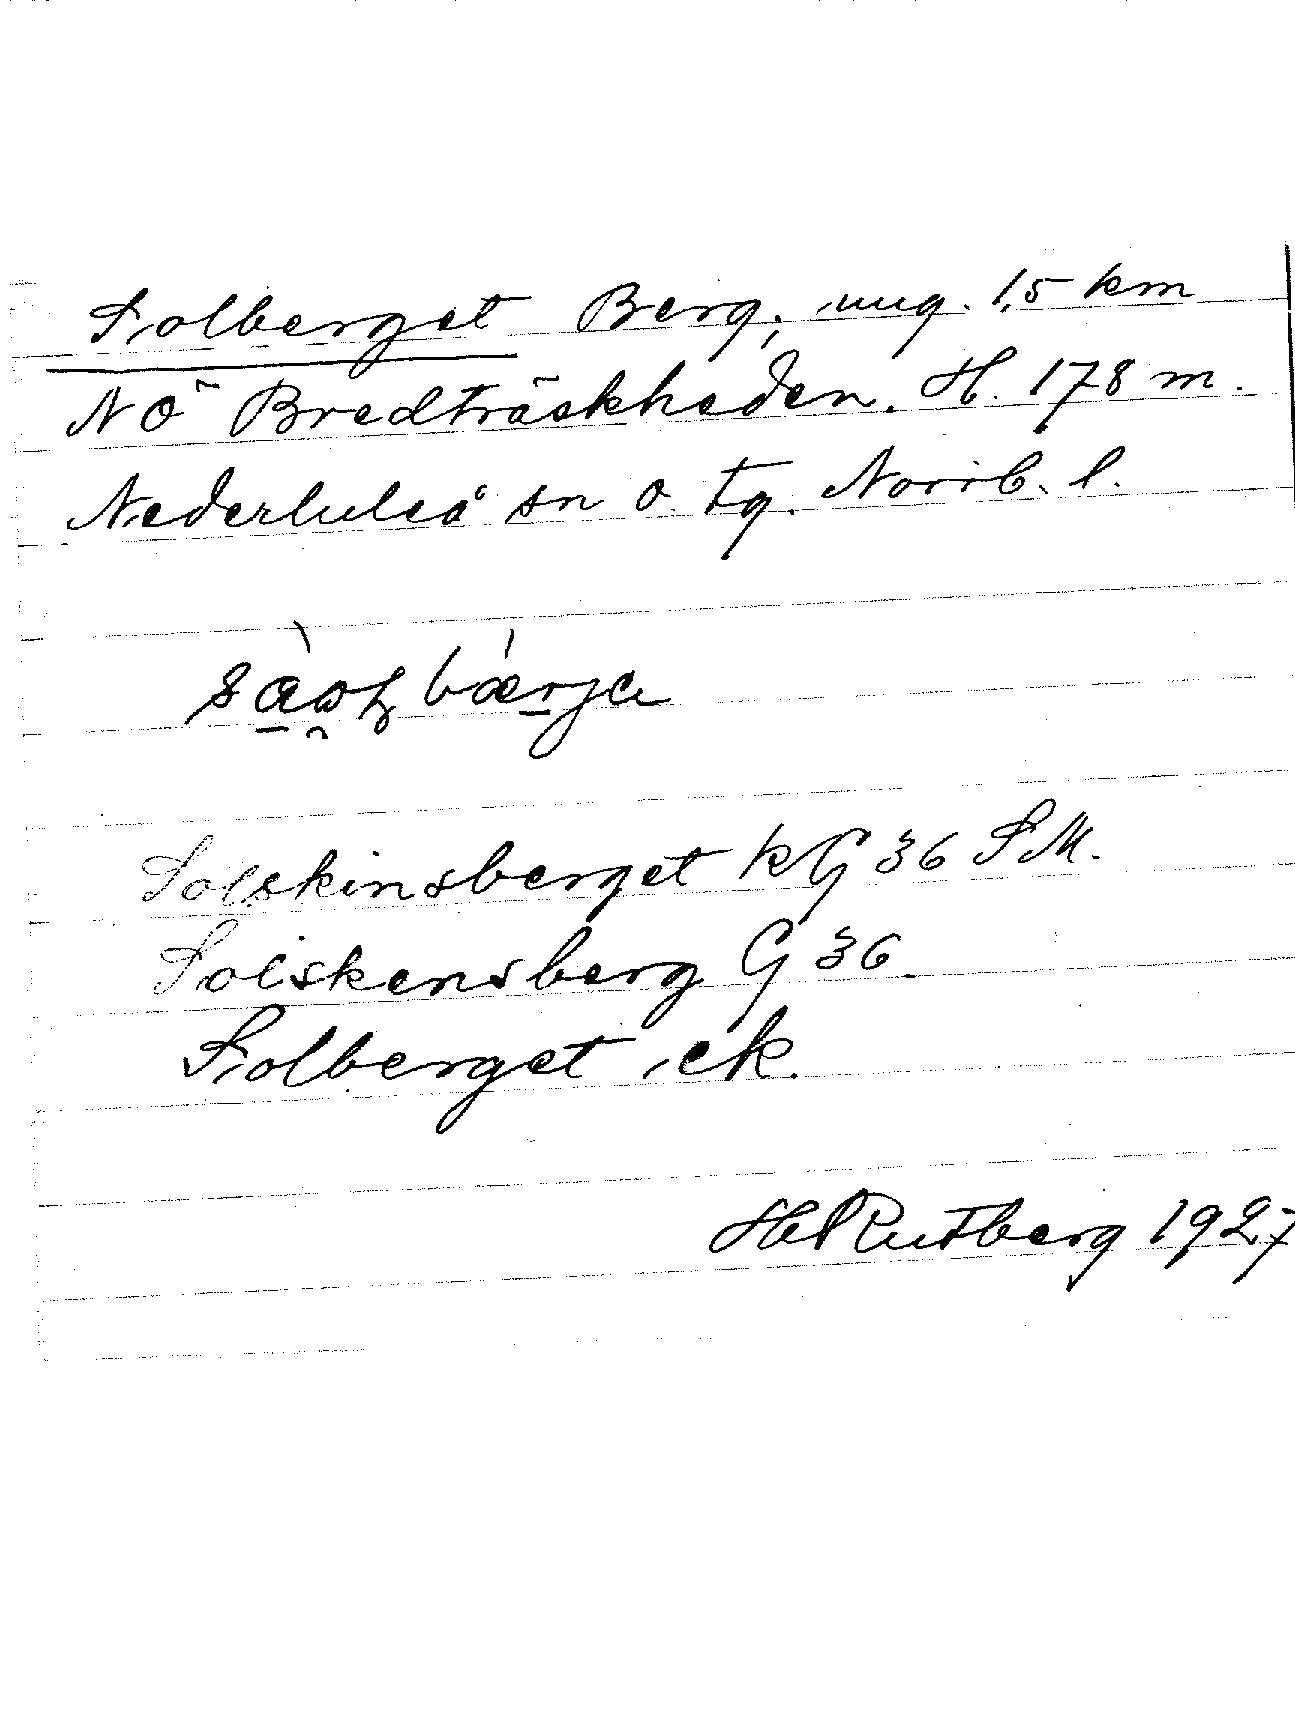 Solberget Berg, ung. 1,5 km
NÖ Bredträskheden. H. 178 m.
Nederluleå sn o. tg. Norrb. l.
Solskinsberget KG 36 SM.
Solskensberg G 36.
Solberget ek.
Hel Rutberg 1927